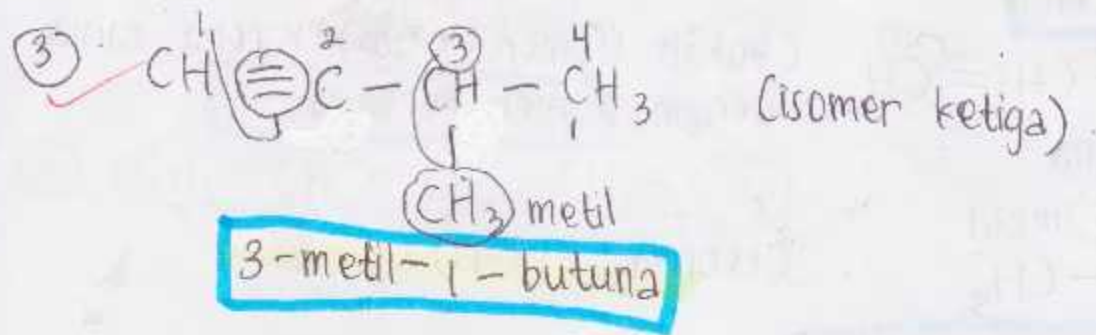 1 2 3 4
3 CH ≡ C - CH - CH3 (isomer ketiga).
CH3 metil
3-metil-1-butuna